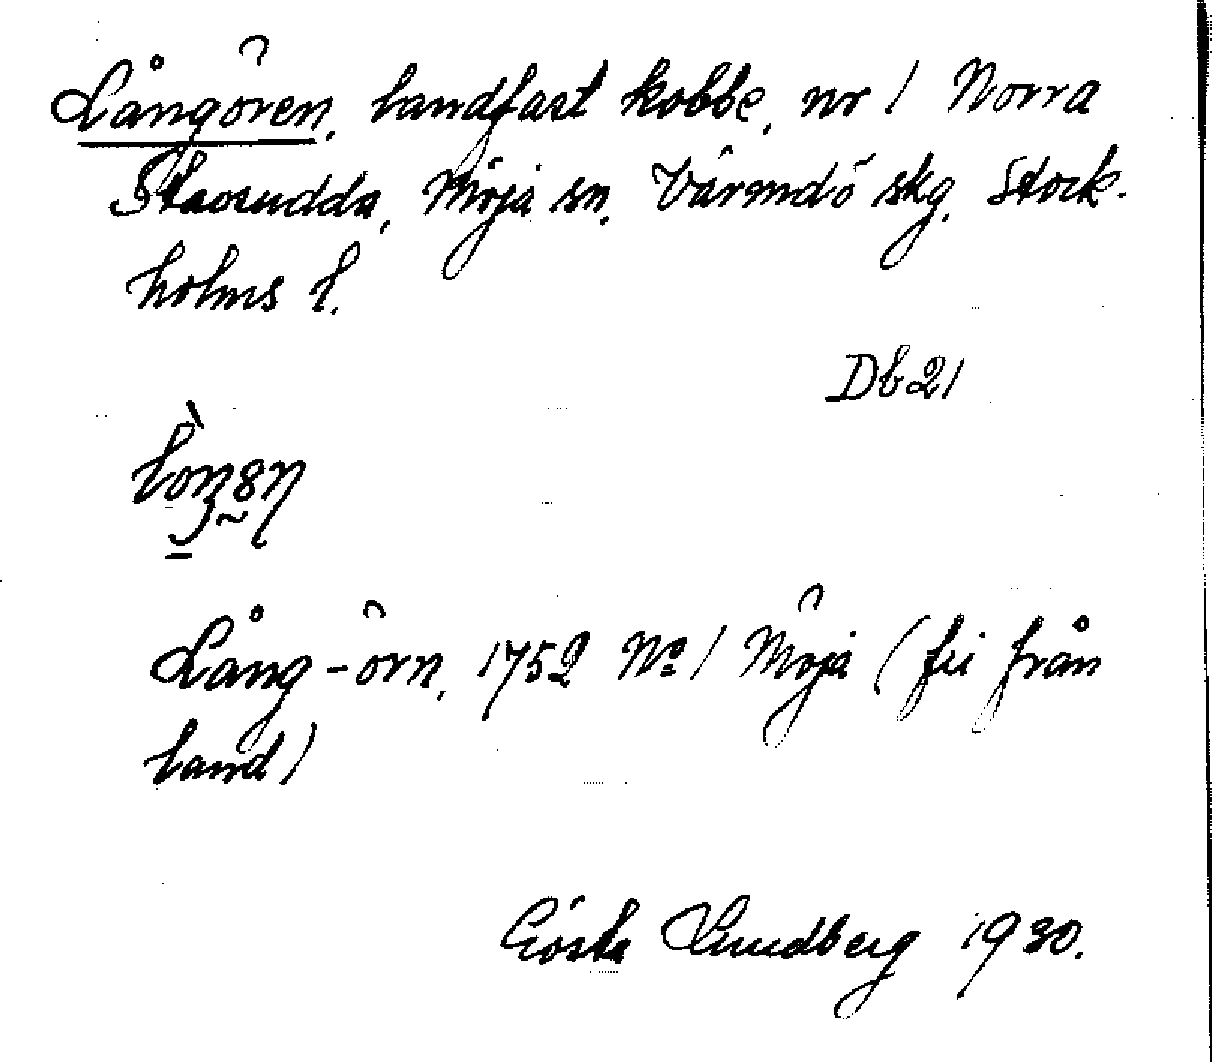 Långören, landfast kobbe, nr 1 Norra
Stavsudda, Möja sn, Värmdö skg, Stock-
holms l.
Db21
Lång-örn, 1752 No 1 Möja (fri från
land)
Gösta Lundberg 1930.